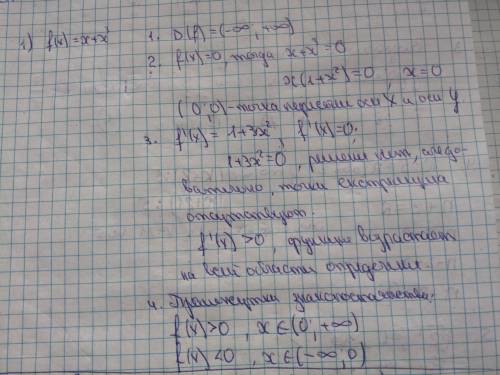 1) f(x)=x+x³ 1. D(f)=(-∞; +∞)
2. f(x)=0, тогда x+x³=0
x(1+x²)=0 ; x=0
(0;0)-точка пересечен оси X и оси Y
3. f'(x)= 1+3x² , f'(x)=0;
1+3x²=0 , решений нет, следо-
вательно, точки екстримума
отсутствуют.
f'(x)>0 , функция возрастает
на всей области определения.
4. Промежутки знакопостоянства:
f(x)>0 , x∈(0; +∞)
f(x)<0 , x∈(-∞; 0)